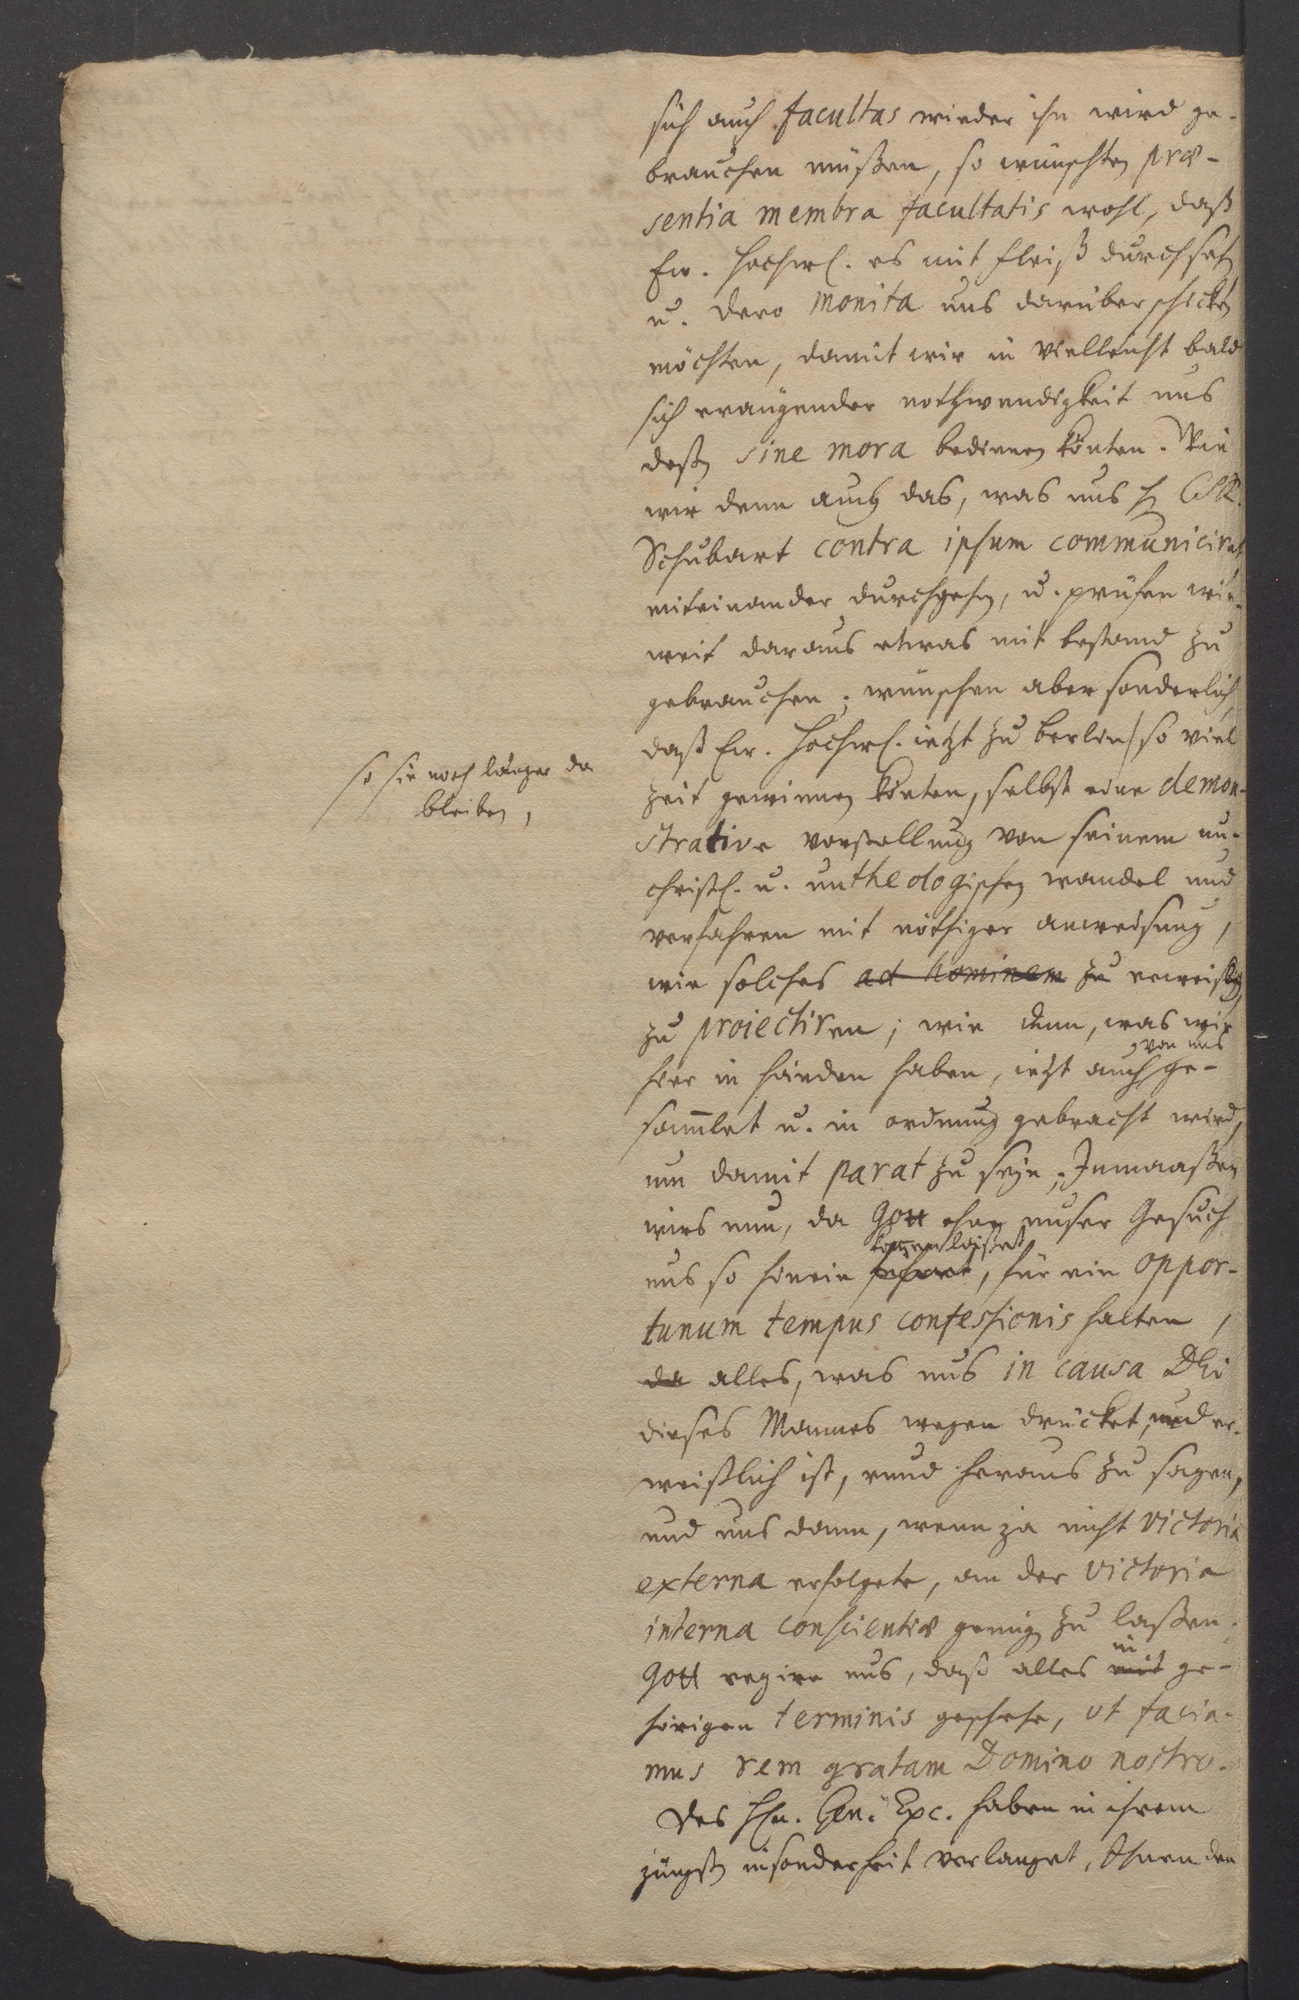 sich auch facultas wieder ihn wird ge-
brauchen müßen, so wünschten præ-
sentia membra facultatis wohl, daß
Ew. Hochw. es mit fleiß durchsehen
u. dero monita uns darüber schicken
möchten, damit wir in vielleicht bald
sich eraügender nothwendigkeit uns
deßen sine mora bedienen könten. Wie
wir denn auch das, was uns H.
Schubart contra ipsum communicirt
miteinander durchgehen, u. prüfen wie-
weit daraus etwas mit bestand zu
gebrauchen; wünschen aber sonderlich,
daß Ew. Hochw. ietzt zu Berlin / so viel
so sie noch länger da
bleiben,
zeit gewinnen könten, selbst eine demon-
strative vorstellung von seinem un-
christl. u. untheologischen wandel und
verfahren mit nöthiger anweisung,
wie solches ad hominem zu erweisen,
zu proiectiren; wie denn, was wir
hier in händen haben, ietzt auch, von uns ge-
samlet u. in ordnung gebracht wird,
um damit parat zu seyn; Inmaaßen
wirs nun, da Gott ohne unser Gesuch
uns so hinein kommen läßet, für ein oppor-
tunum tempus confessionis halten,
da alles, was uns in causa Dei
dieses Mannes wegen drücket, und er-
weißlich ist, rund heraus zu sagen,
und uns dann, wenn ja nicht victoria
externa erfolgete, an der victoria
interna conscientiæ genug zu laßen.
Gott regire uns, daß alles in mit ge-
hörigen terminis geschehe, ut facia-
mus rem gratam Domino nostro.
Des Hn. Gen. Exc. haben in ihrem
jüngsten insonderheit verlanget, Ihnen den